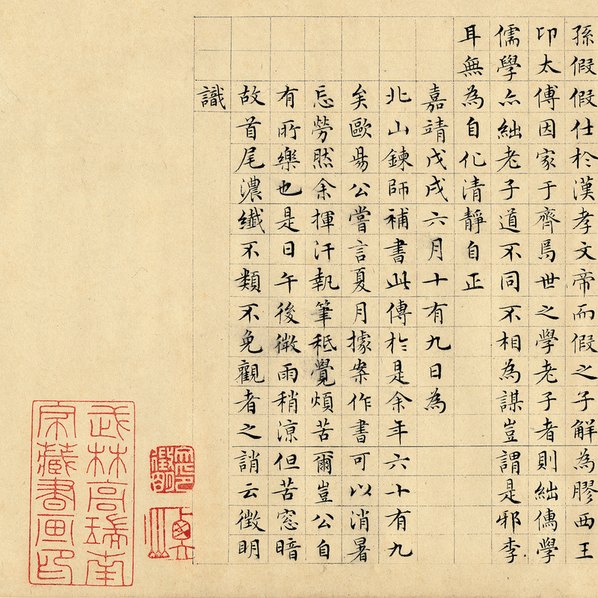 孫假假仕於漢孝文帝而假之子解為膠西王
卬太傅因家于齊焉世之學老子者則絀儒學
儒學亦絀老子道不同不相為謀豈謂是邪李
耳無為自化清靜自正
嘉靖戊戌六月十有九日為
北山鍊師補書此傳於是余年六十有九
矣歐昜公嘗言夏月據案作書可以消暑
忘勞然余揮汗執筆秪覺煩苦爾豈公自
有所樂也是日午後微雨稍凉但苦窓暗
故首尾濃纖不類不免觀者之誚云徵明
識
武林高瑞南
家藏書畫印